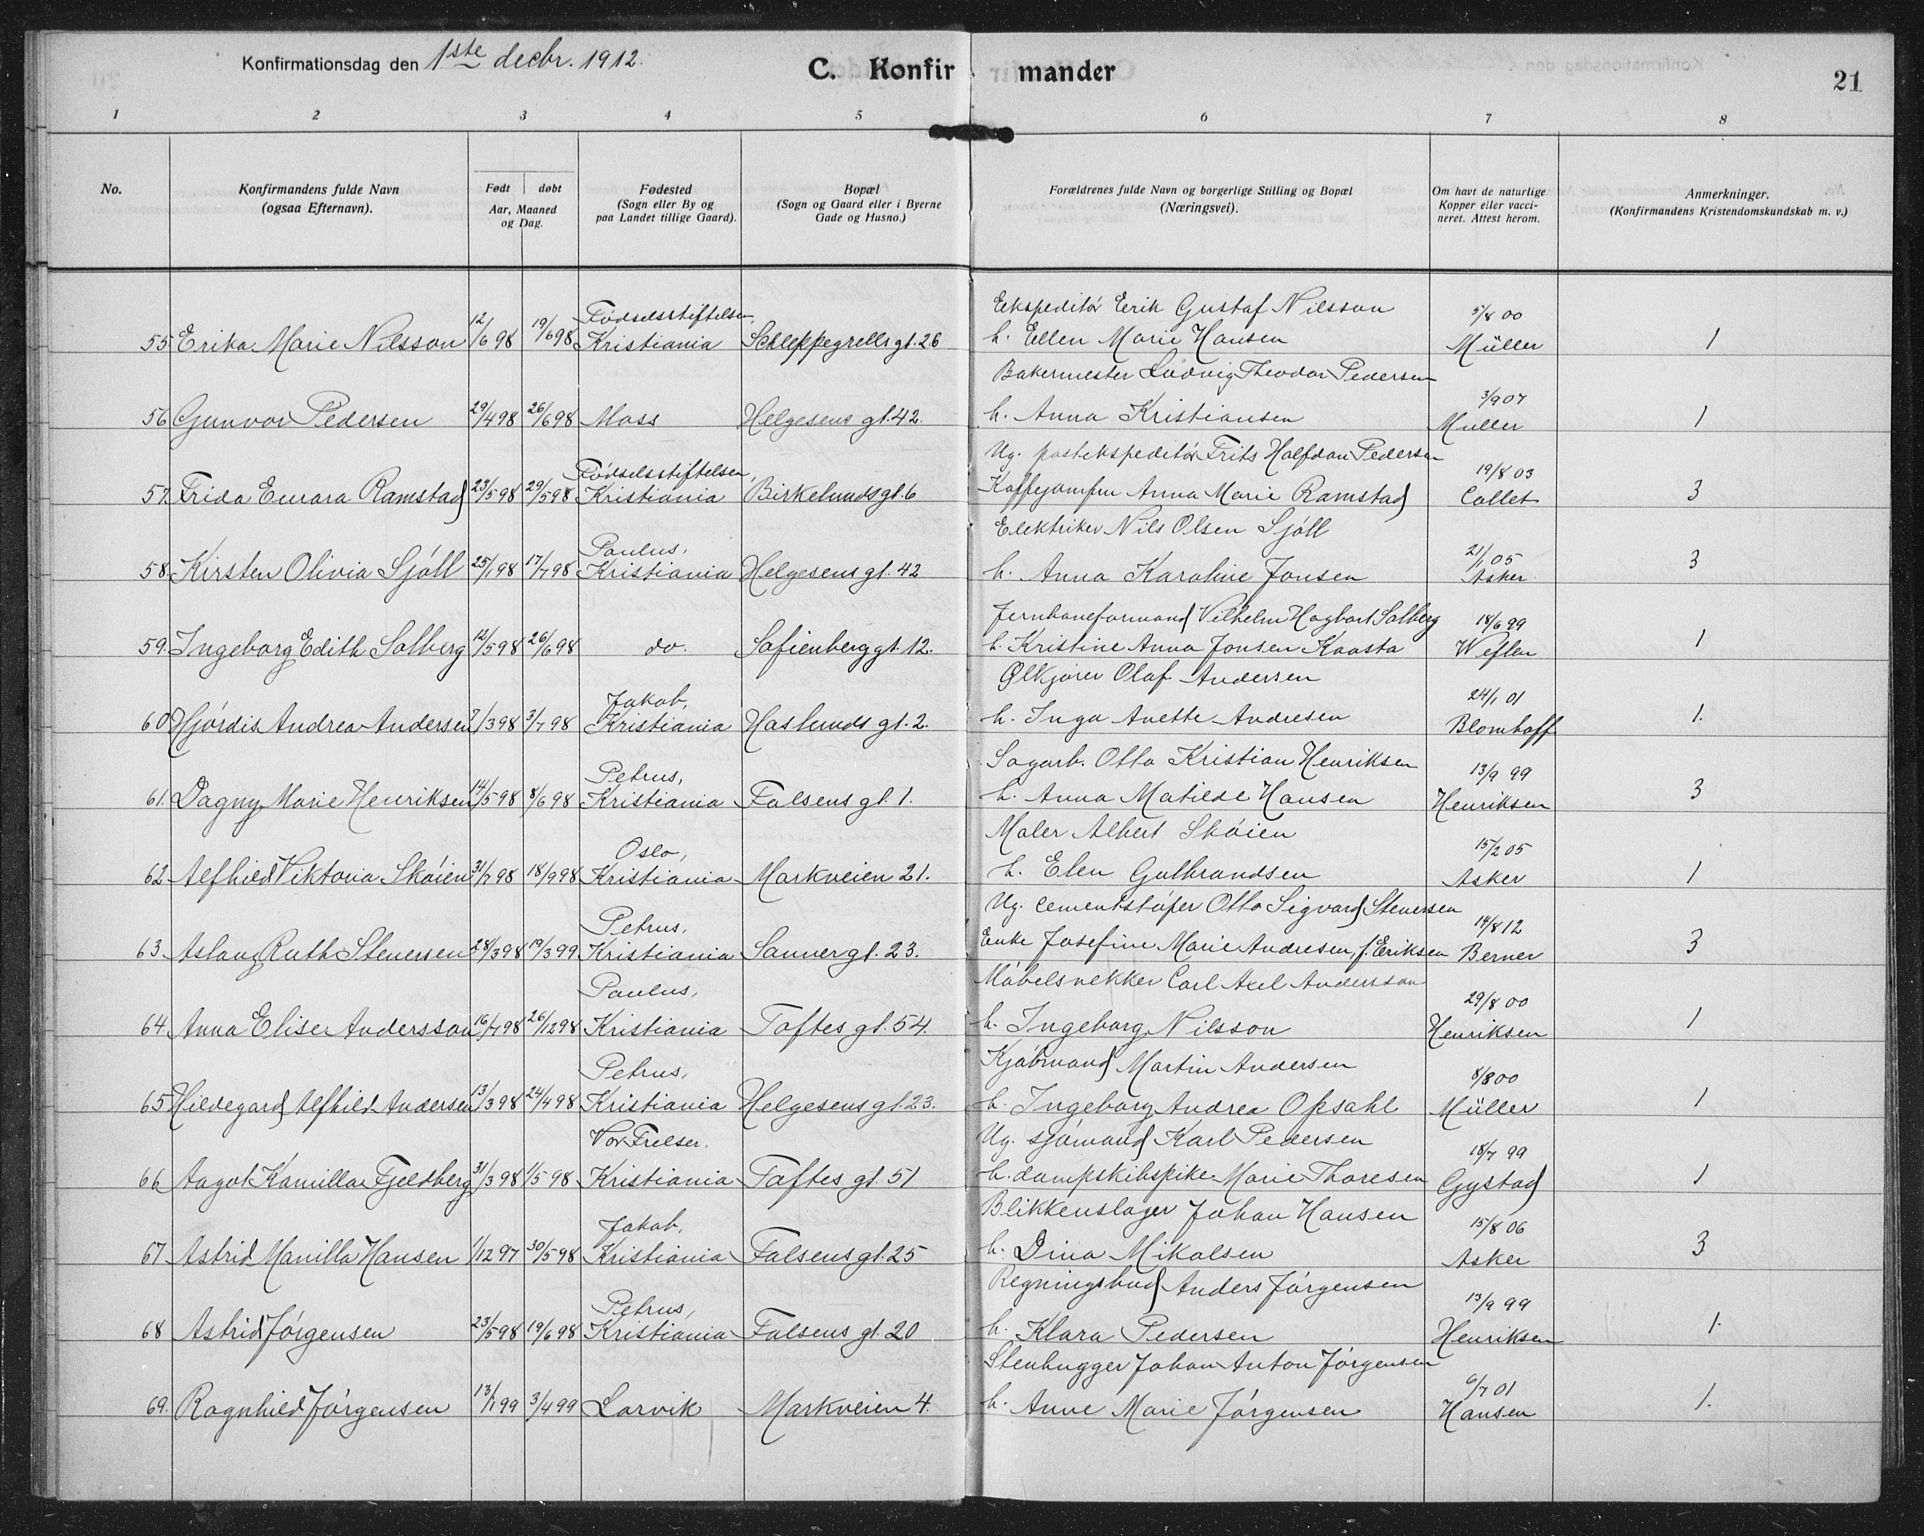 Konfirmationsdag den 1ste decbr. 1912.
C. Konfir mander
21
1 2 3 4 5 6 7 8
No.
Konfirmandens fulde Navn
(ogsaa Efternavn).
Født døbt
Aar, Maaned
og Dag.
Fødested
(Sogn eller By og
paa Landet tillige Gaard).
Bopæl
(Sogn og Gaard eller i Byerne
Gade og Husno.)
Forældrenes fulde Navn og borgerlige Stilling og Bopæl
(Næringsvei).
Om havt de naturlige
Kopper eller vacci-
neret. Attest herom.
Anmerkninger.
(Konfirmandens Kristendomskundskab m. v.)
Fødselsstiftelsen, Ekspeditør Erik Gustaf Nilsson 5/8 00
55 Erika Marie Nilsson 12/6 98 19/6 98 Kristiania Schleppegrells gt. 26 h. Ellen Marie Hansen Müller 1
Bakermester Ludvig Theodor Pedersen 3/9 07
56 Gunvor Pedersen 29/4 98 26/6 98 Moss Helgesens gt. 42. h. Anna Kristiansen Müller 1
Fødselsstiftelsen, Ug. postekspeditør Frits Halfdan Pedersen 19/8 03
57. Frida Emara Ramstad 23/5 98 29/5 98 Kristiania Birkelunds gt. 6 Kaffejomfru Anna Marie Ramstad Collet 3
Paulus, Elektriker Nils Olsen Sjöll 21/1 05
58. Kirsten Olivia Sjöll 25/1 98 17/7 98 Kristiania Helgesens gt. 42 h. Anna Karoline Jonsen Asker 3
Jernbaneformand Vilhelm Hagbart Solberg 18/6 99
59. Ingeborg Edith Solberg 12/5 98 26/6 98 do. Sofienberggt. 12. h. Kristine Anna Jonsen Kaasta Weflen 1
Jakob, Ølkjører Olaf Andersen 24/1 01
60 Hjördis Andrea Andersen 7/3 98 3/7 98 Kristiania Haslunds gt. 2. h. Inga Anette Andresen Blomhoff 1.
Petrus, Sagarb. Otto Kristian Henriksen 13/9 99
61. Dagny Marie Henriksen 14/5 98 8/6 98 Kristiania Falsens gt. 1. h. Anna Matilde Hansen Henriksen 3
Oslo, Maler Albert Skøien 15/2 05
62 Alfhild Viktoria Skøien 31/7 98 18/9 98 Kristiania Markveien 21. h. Elen Gulbrandsen Asker 1
Petrus, Ug. cementstøper Otto Sigvard Stenersen 14/8 12
63 Aslaug Ruth Stenersen 28/3 98 19/3 99 Kristiania Sannergt. 23. Enke Josefine Marie Andresen, f. Eriksen Berner 3
Paulus, Möbelsnekker Carl Axel Andersson 29/8 00
64. Anna Elise Andersson 16/7 98 26/12 98 Kristiania Toftes gt. 54. h. Ingeborg Nilsson Henriksen 1
Petrus, Kjøbmand Martin Andersen 8/8 00
65 Hildegard Alfhild Andersen 13/3 98 24/4 98 Kristiania Helgesens gt. 23. h. Ingeborg Andrea Opsahl Müller 1
Vor Frelser. Ug. sjömand Karl Pedersen 18/7 99
66 Aagot Kamilla Fjeldberg 31/3 98 1/5 98 Kristiania Toftes gt. 51 h. dampskibspike Marie Thoresen Gystad 1
Jakob, Blikkenslager Johan Hansen 15/8 06
67 Astrid Manilla Hansen 1/12 97 30/5 98 Kristiania Falsens gt. 25 h. Dina Mikalsen Asker 3
Petrus, Regningsbud Anders Jørgensen 13/9 99
68 Astrid Jørgensen 23/5 98 19/6 98 Kristiania Falsens gt. 20 h. Klara Pedersen Henriksen 1.
Stenhugger Johan Anton Jørgensen 6/7 01
69. Ragnhild Jørgensen 13/1 99 3/4 99 Larvik Markveien 4. h. Anne Marie Jørgensen Hansen 1.